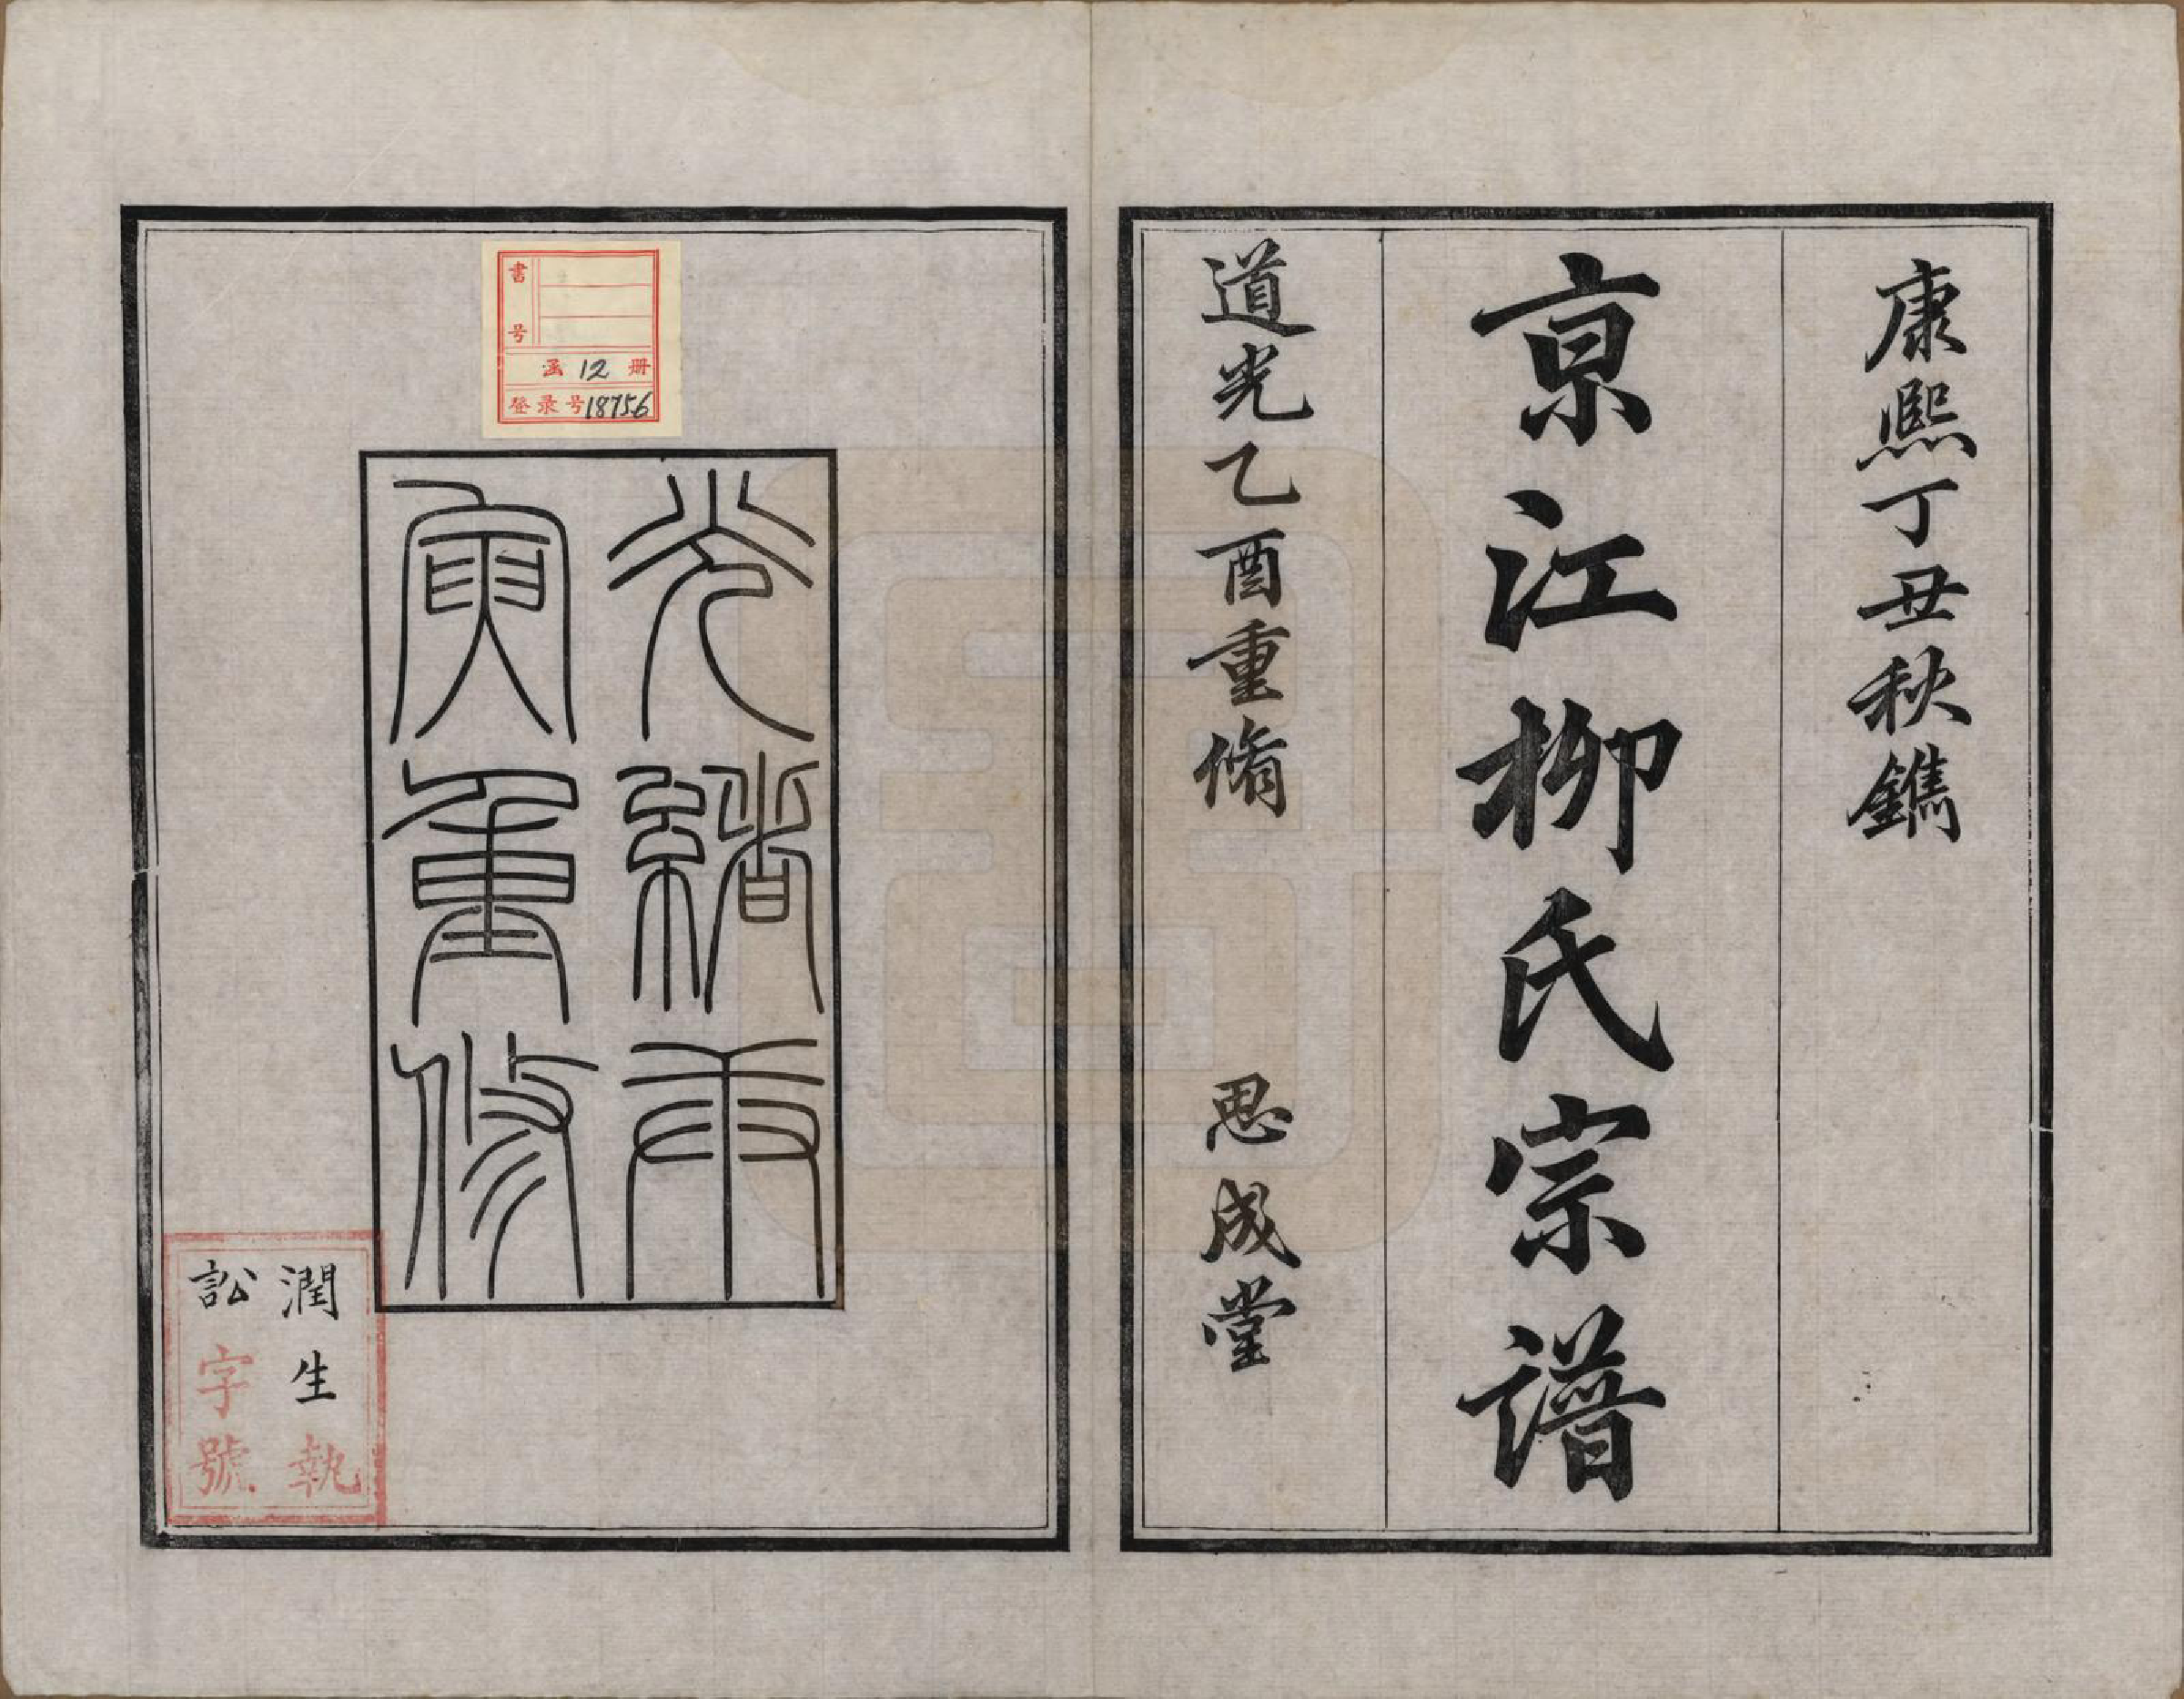 康熙丁丑秋鐫
亰江柳氏宗譜
道光乙酉重脩　思成堂
書号
函 12 册
登录号 18756
光緒庚
寅重修
潤生執
訟字號